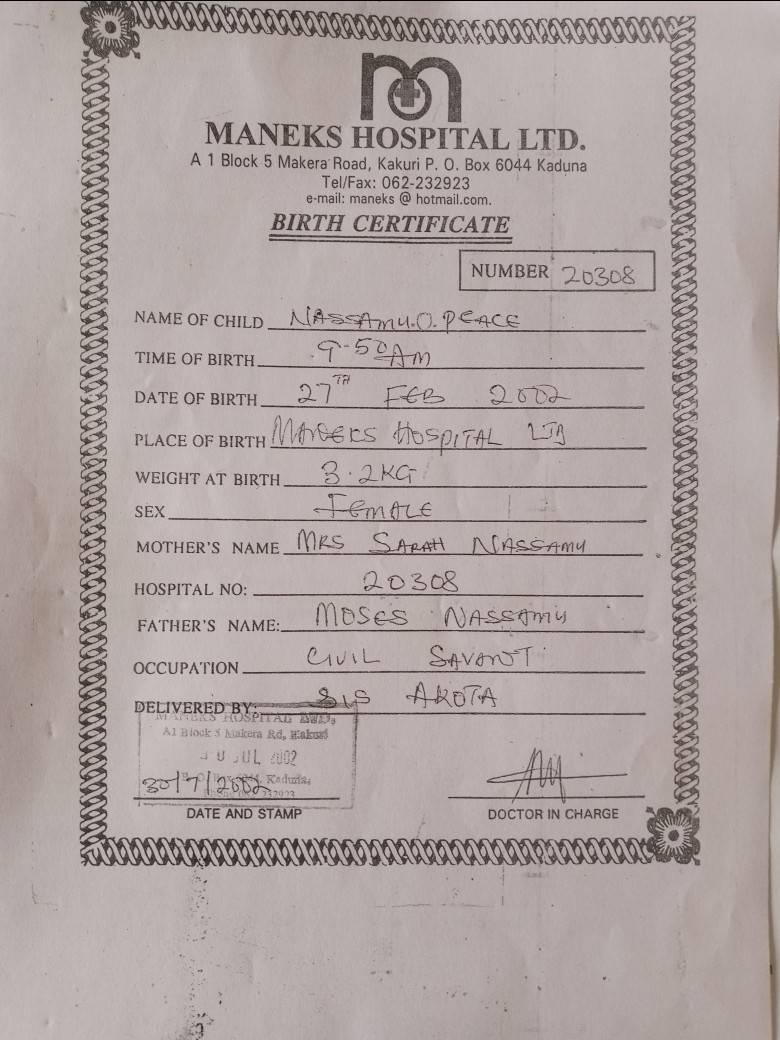 MANEKS HOSPITAL LTD.
A 1 Block 5 Makera Road, Kakuri P. O. Box 6044 Kaduna
Tel/Fax: 062-232923
e-mail: maneks @ hotmail.com.
BIRTH CERTIFICATE
NUMBER 20308
NAME OF CHILD NASSAMU.O.PEACE
TIME OF BIRTH 9-50AM
DATE OF BIRTH 27TH FEB 2002
PLACE OF BIRTH MANEKS HOSPITAL LTD
WEIGHT AT BIRTH 3.2KG
SEX FEMALE
MOTHER'S NAME MRS SARAH NASSAMU
HOSPITAL NO: 20308
FATHER'S NAME: MOSES NASSAMU
OCCUPATION CIVIL SAVANT
DELIVERED BY: SIS AKOTA
MANEKS HOSPITAL
A1 Block 5 Makera Rd, Kakuri
JUL 2002
30/7/2002
Kaduna,
232923
DATE AND STAMP
DOCTOR IN CHARGE